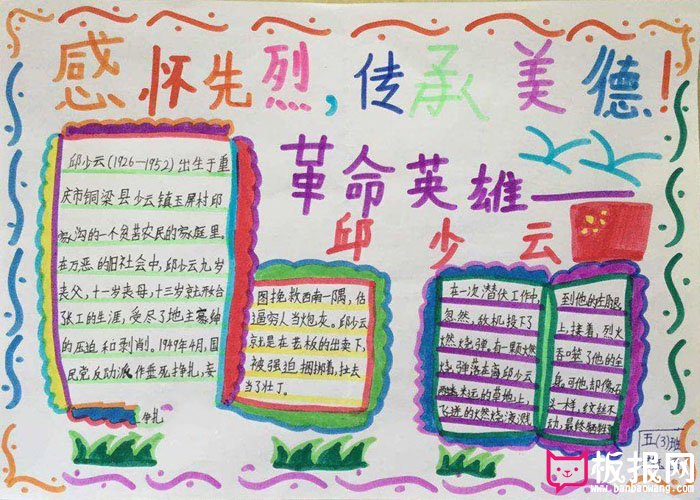 感怀先烈，传承美德！
革命英雄——
邱少云
邱少云(1926—1952)出生于重
庆市铜梁县少云镇玉屏村邱
家沟的一个贫苦农民的家庭里,
在万恶的旧社会中,邱少云九岁
丧父,十一岁丧母,十三岁就开始
长工的生涯,受尽了地主
的压迫和剥削。1949年4月,国
民党反动派作垂死挣扎,妄
挣扎
图挽救西南一隅,估
逼穷人当炮灰。邱少云
就是在老板的出卖下,
被强迫捆绑着,拉去
当了壮丁。
在一次潜伏工作中,
忽然,敌机投下了
燃烧弹,有一颗燃
烧弹落在离邱少云
不远的草地上,
飞迸的燃烧液溅
到他的左腿
上,接着,烈火
吞噬了他的全
身,可他却像
头一样,纹丝不
动,最终牺牲
五(3)班
板报网
www.banbaowang.com